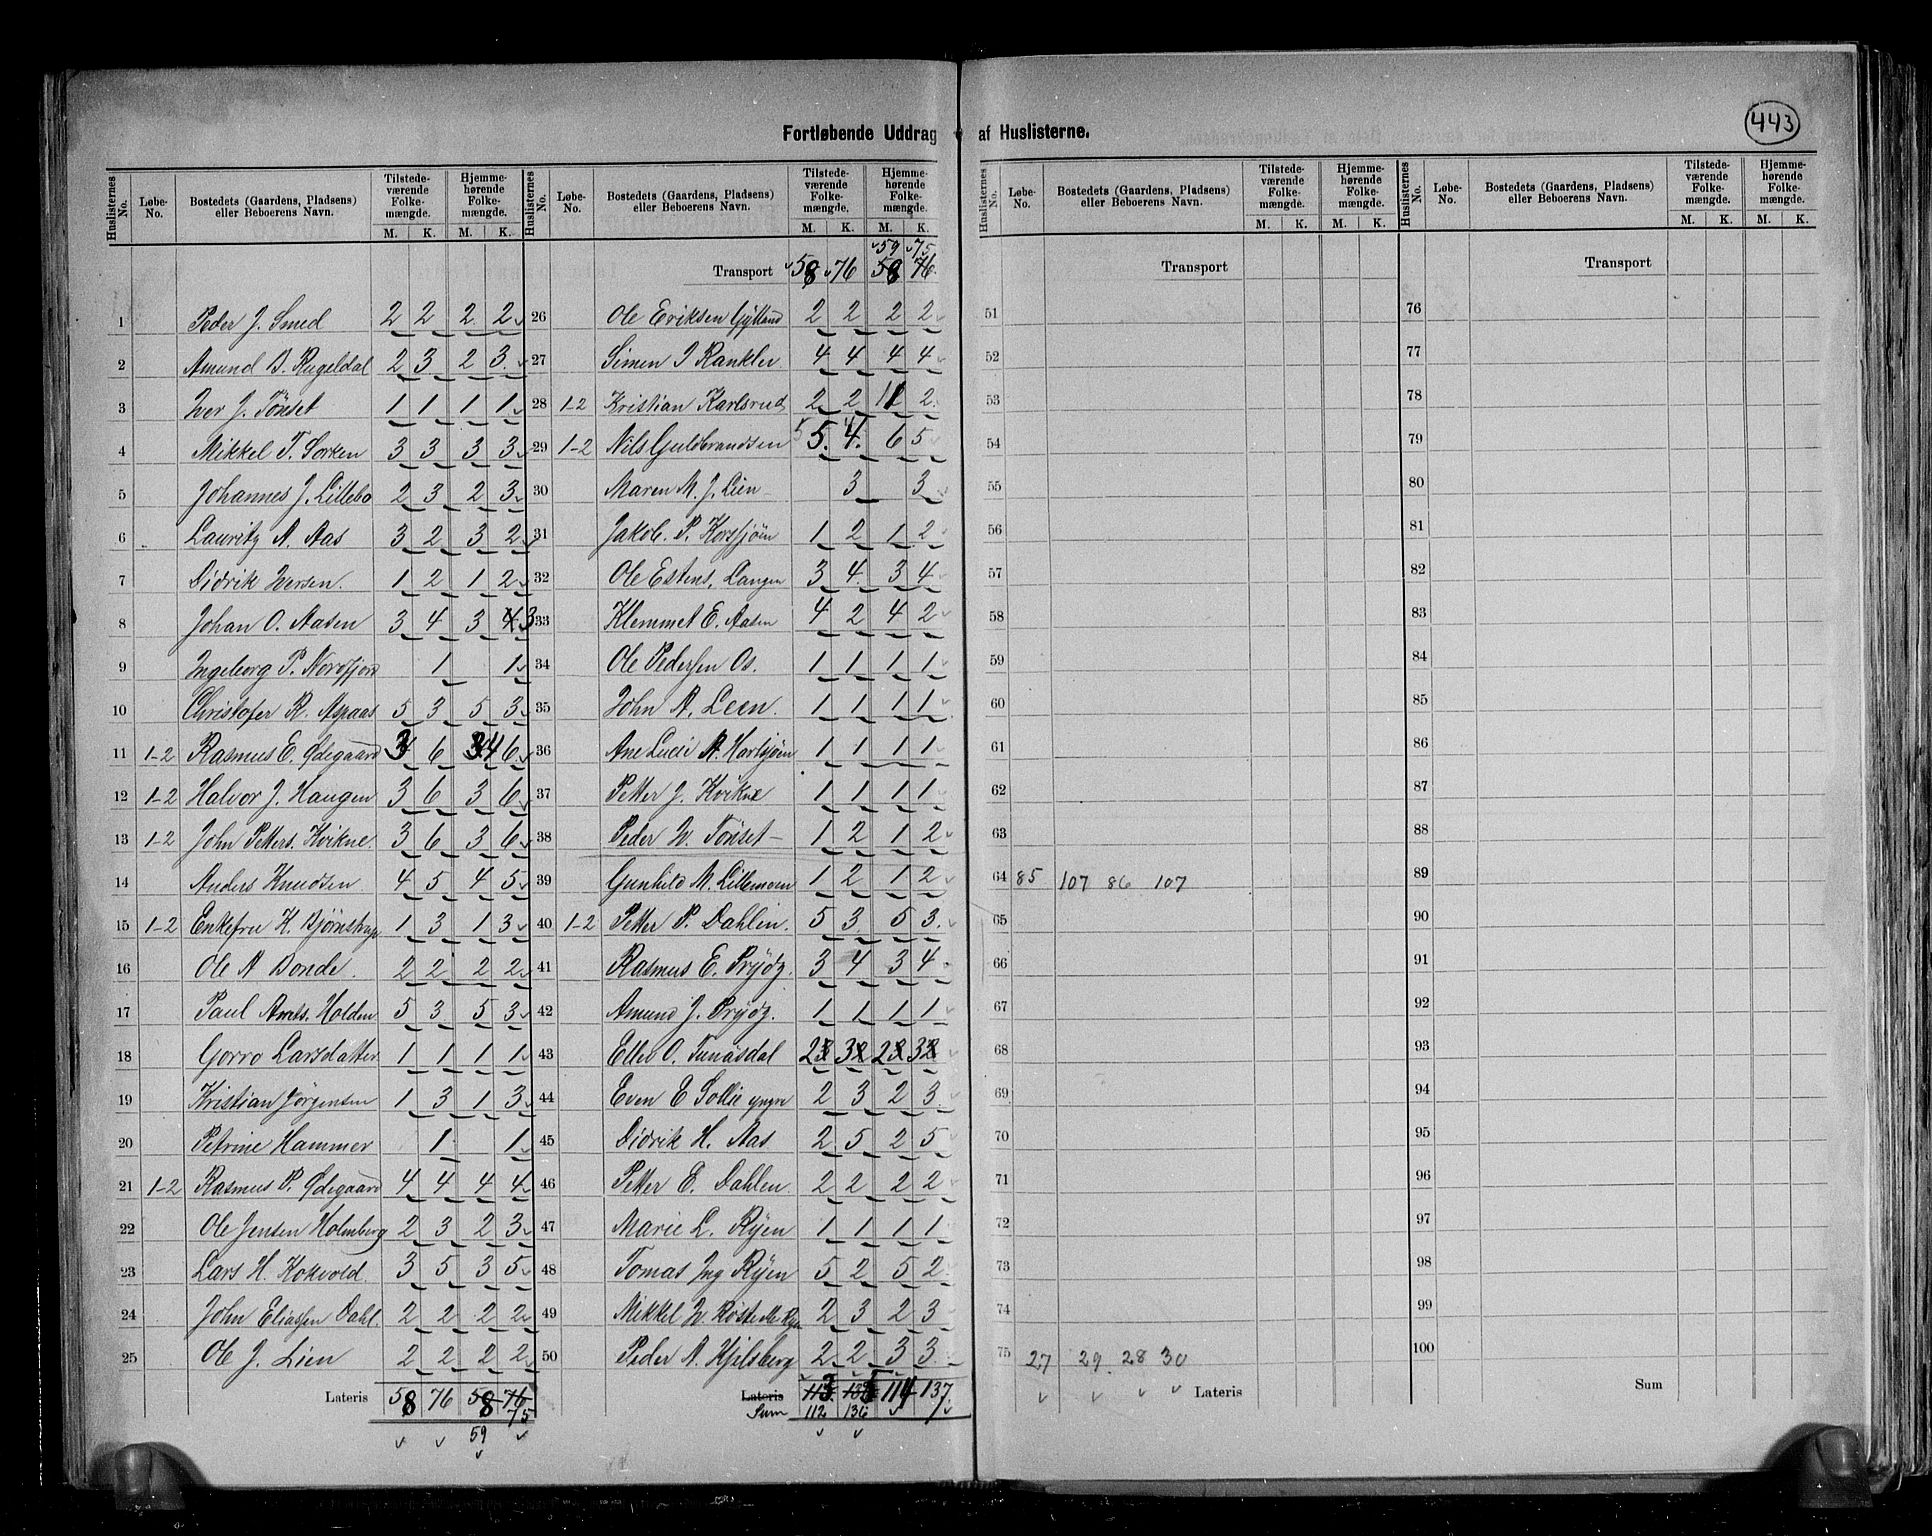 Fortløbende Uddrag af Huslisterne.
443
Huslisternes No. Løbe-No. Bostedets (Gaardens, Pladsens) eller Beboerens Navn. Tilstede-værende Folke-mængde. M. K. Hjemme-hørende Folke-mængde. M. K.
1 Peder J. Smed 2 2 2 2
2 Amund B. Rugeldal 2 3 2 3
3 Iver J. Tönset 1 1 1 1
4 Mikkel T. Sorken 3 3 3 3
5 Johannes J. Lillebo 2 3 2 3
6 Lauritz A. Aas 3 2 3 2
7 Didrik Iversen. 1 2 1 2
8 Johan O. Aasen 3 4 3 4 3
9 Ingeborg P. Norsfjord 1 1
10 Christofer R. Aspaas 5 3 5 3
11 1-2 Rasmus E. Ødegaard 3 6 3 4 6
12 1-2 Halvor J. Haugen 3 6 3 6
13 1-2 John Petters. Kvikne. 3 6 3 6
14 Anders Knudsen 4 5 4 5
15 1-2 Enkefru H. Bjørnstrup 1 3 1 3
16 Ole A Bonde. 2 2 2 2
17 Paul Arnts. Holden 5 3 5 3
18 Gorro Larsdatter 1 1 1 1
19 Kristian Jörgensen 1 3 1 3
20 Petrine Hammer 1 1
21 1-2 Rasmus P. Ødegaard 4 4 4 4
22 Ole Jensen Holmberg 2 3 2 3
23 Lars H. Kokvold. 3 5 3 5
24 John Eliassen Dahl. 2 2 2 2
25 Ole J. Lien 2 2 2 2
Lateris 58 76 58 76
59 75
Huslisternes No. Løbe-No. Bostedets (Gaardens, Pladsens) eller Beboerens Navn. Tilstede-værende Folke-mængde. M. K. Hjemme-hørende Folke-mængde. M. K.
59 75
Transport 58 76 58 76
26 Ole Eriksen Gylland 2 2 2 2
27 Simen J Rankler 4 4 4 4
28 1-2 Kristian Karlsrud 2 2 1 2
29 1-2 Nils Guldbrandsen 5 4 6 5
30 Maren M. J. Lien 3 3
31 Jakob. P. Korssjöen 1 2 1 2
32 Ole Estens. Langen 3 4 3 4
33 Klemmet E. Aasen 4 2 4 2
34 Ole Pedersen Os. 1 1 1 1
35 John A. Leen. 1 1 1 1
36 Ane Lucie A. Harsjöen 1 1 1 1
37 Petter J. Kvikne 1 1 1 1
38 Peder Iv. Tönset 1 2 1 2
39 Gunhild M. Lillemoen 1 2 1 2
40 1-2 Petter P. Dahlen. 5 3 5 3
41 Rasmus E. Prydz. 3 4 3 4
42 Amund J. Prydz. 1 1 1 1
43 Eller O. Tunäsdal 2 3 2 3
44 Even E Sollie yngre 2 3 2 3
45 Didrik H. Aas 2 5 2 5
46 Petter E. Dahlen. 2 2 2 2
47 Marie L. Ryen 1 1 1 1
48 Tomas Ing Ryen 5 2 5 2
49 Mikkel Iv. 2 3 2 3
50 Peder A. Hjelsberg 2 2 3 3
Lateris 114 137
Sum 112 136
Huslisternes No. Løbe-No. Bostedets (Gaardens, Pladsens) eller Beboerens Navn. Tilstede-værende Folke-mængde. M. K. Hjemme-hørende Folke-mængde. M. K.
Transport
51
52
53
54
55
56
57
58
59
60
61
62
63
64 85 107 86 107
65
66
67
68
69
70
71
72
73
74
75 27 29 28 30
Lateris
Huslisternes No. Løbe-No. Bostedets (Gaardens, Pladsens) eller Beboerens Navn. Tilstede-værende Folke-mængde. M. K. Hjemme-hørende Folke-mængde. M. K.
Transport
76
77
78
79
80
81
82
83
84
85
86
87
88
89
90
91
92
93
94
95
96
97
98
99
100
Sum